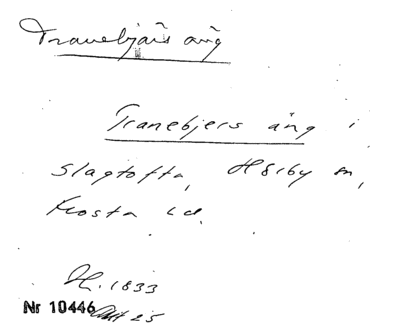 Tranebjärs äng
Tranebjers äng i
Slagtofta, Hörby sn,
Frosta hd.
H. 1833
Nr 10446 Akt 25